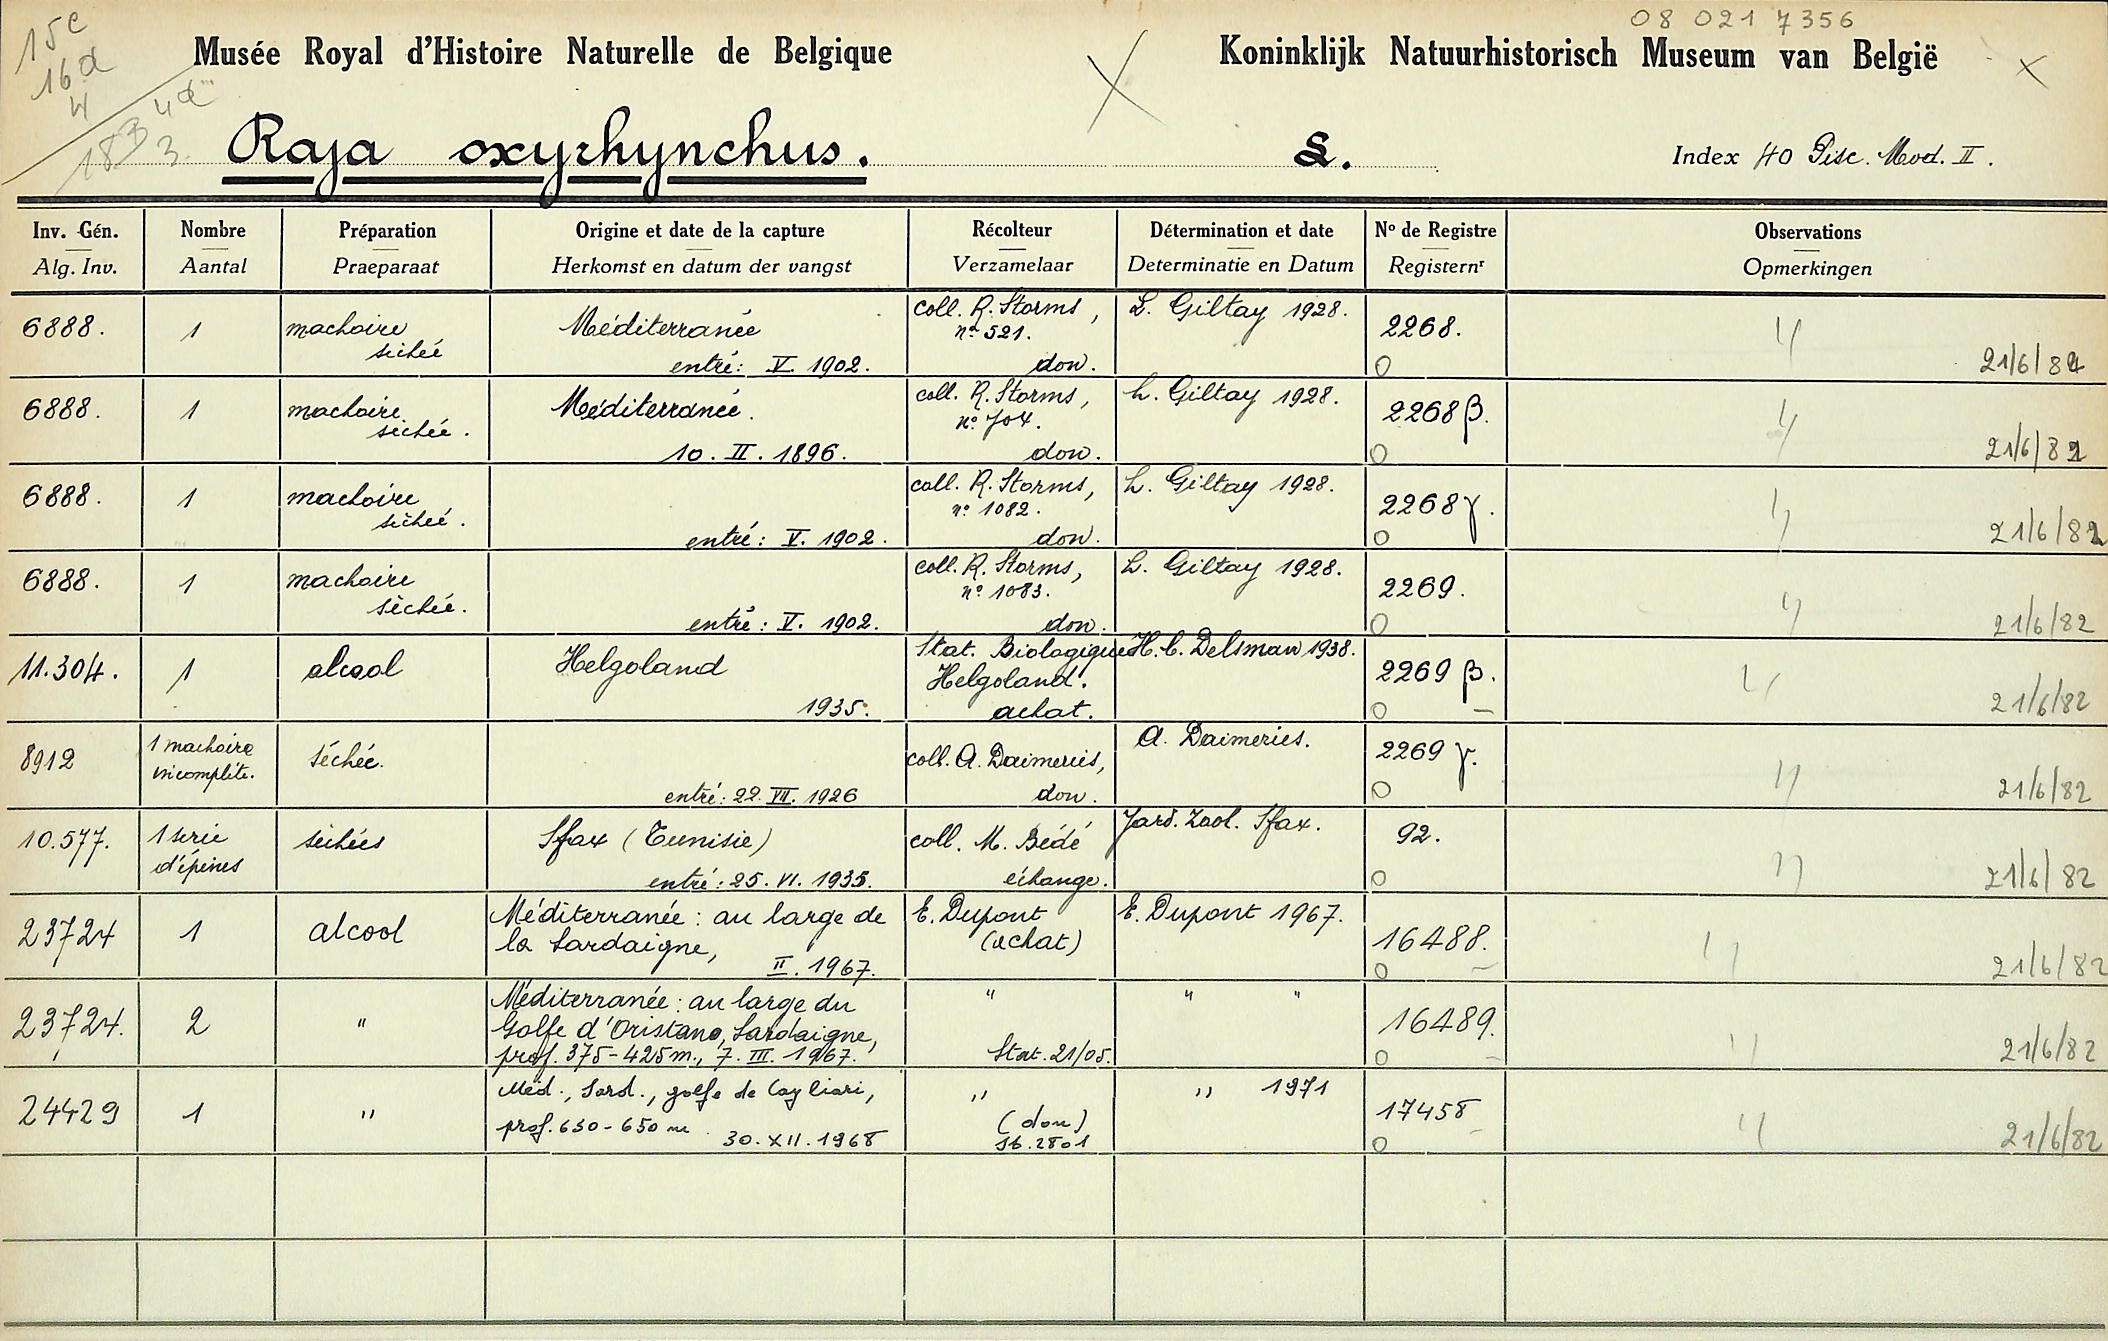 08 021 7356
15c
16d
4
4d
183 3.
Musée Royal d'Histoire Naturelle de Belgique
Koninklijk Natuurhistorisch Museum van België
Raja oxyrhynchus.
L.
Index 40 Pisc. Mod. II.
Inv. Gén. Nombre Préparation Origine et date de la capture Récolteur Détermination et date Nº de Registre Observations
Alg. Inv. Aantal Praeparaat Herkomst en datum der vangst Verzamelaar Determinatie en Datum Registernr Opmerkingen
6888. 1 machoire Méditerranée coll. R. Storms, L. Giltay 1928. 2268.
séchée nº 521.
entré: V. 1902. don. 0 21/6/82
6888. 1 machoire Méditerranée. coll. R. Storms, L. Giltay 1928. 2268 β.
séchée. nº 704.
10. II. 1896. don. 0 21/6/82
6888. 1 machoire coll. R. Storms, L. Giltay 1928. 2268 γ.
séchée. nº 1082.
entré: V. 1902. don. 0 21/6/82
6888. 1 machoire coll. R. Storms, L. Giltay 1928. 2269.
séchée. nº 1083.
entré: V. 1902. don. 0 21/6/82
11.304. 1 alcool Helgoland Stat. Biologique H.C. Delsman 1938. 2269 β.
Helgoland.
1935. achat. 0 – 21/6/82
8912 1 machoire séchée. coll. A. Daimeries, A. Daimeries. 2269 γ.
incomplète.
entré: 22. VII. 1926 don. 0 21/6/82
10.577. 1 serie séchées Sfax (Tunisie) coll. M. Bédé Jard. Zool. Sfax. 92.
d'épines
entré: 25. VI. 1935. échange. 0 21/6/82
23724 1 alcool Méditerranée: au large de E. Dupont E. Dupont 1967. 16488.
la Sardaigne, (achat)
II. 1967. 0 – 21/6/82
23724. 2 " Méditerranée: au large du " " " 16489.
Golfe d'Oristano, Sardaigne,
prof. 375-425m., 7. III. 1967. Stat. 21/05. 0 – 21/6/82
24429 1 " Méd., Sard., golfe de Cagliari, " " 1971 17458
prof. 630-650 m (don)
30. XII. 1968 St. 2801 0 – 21/6/82